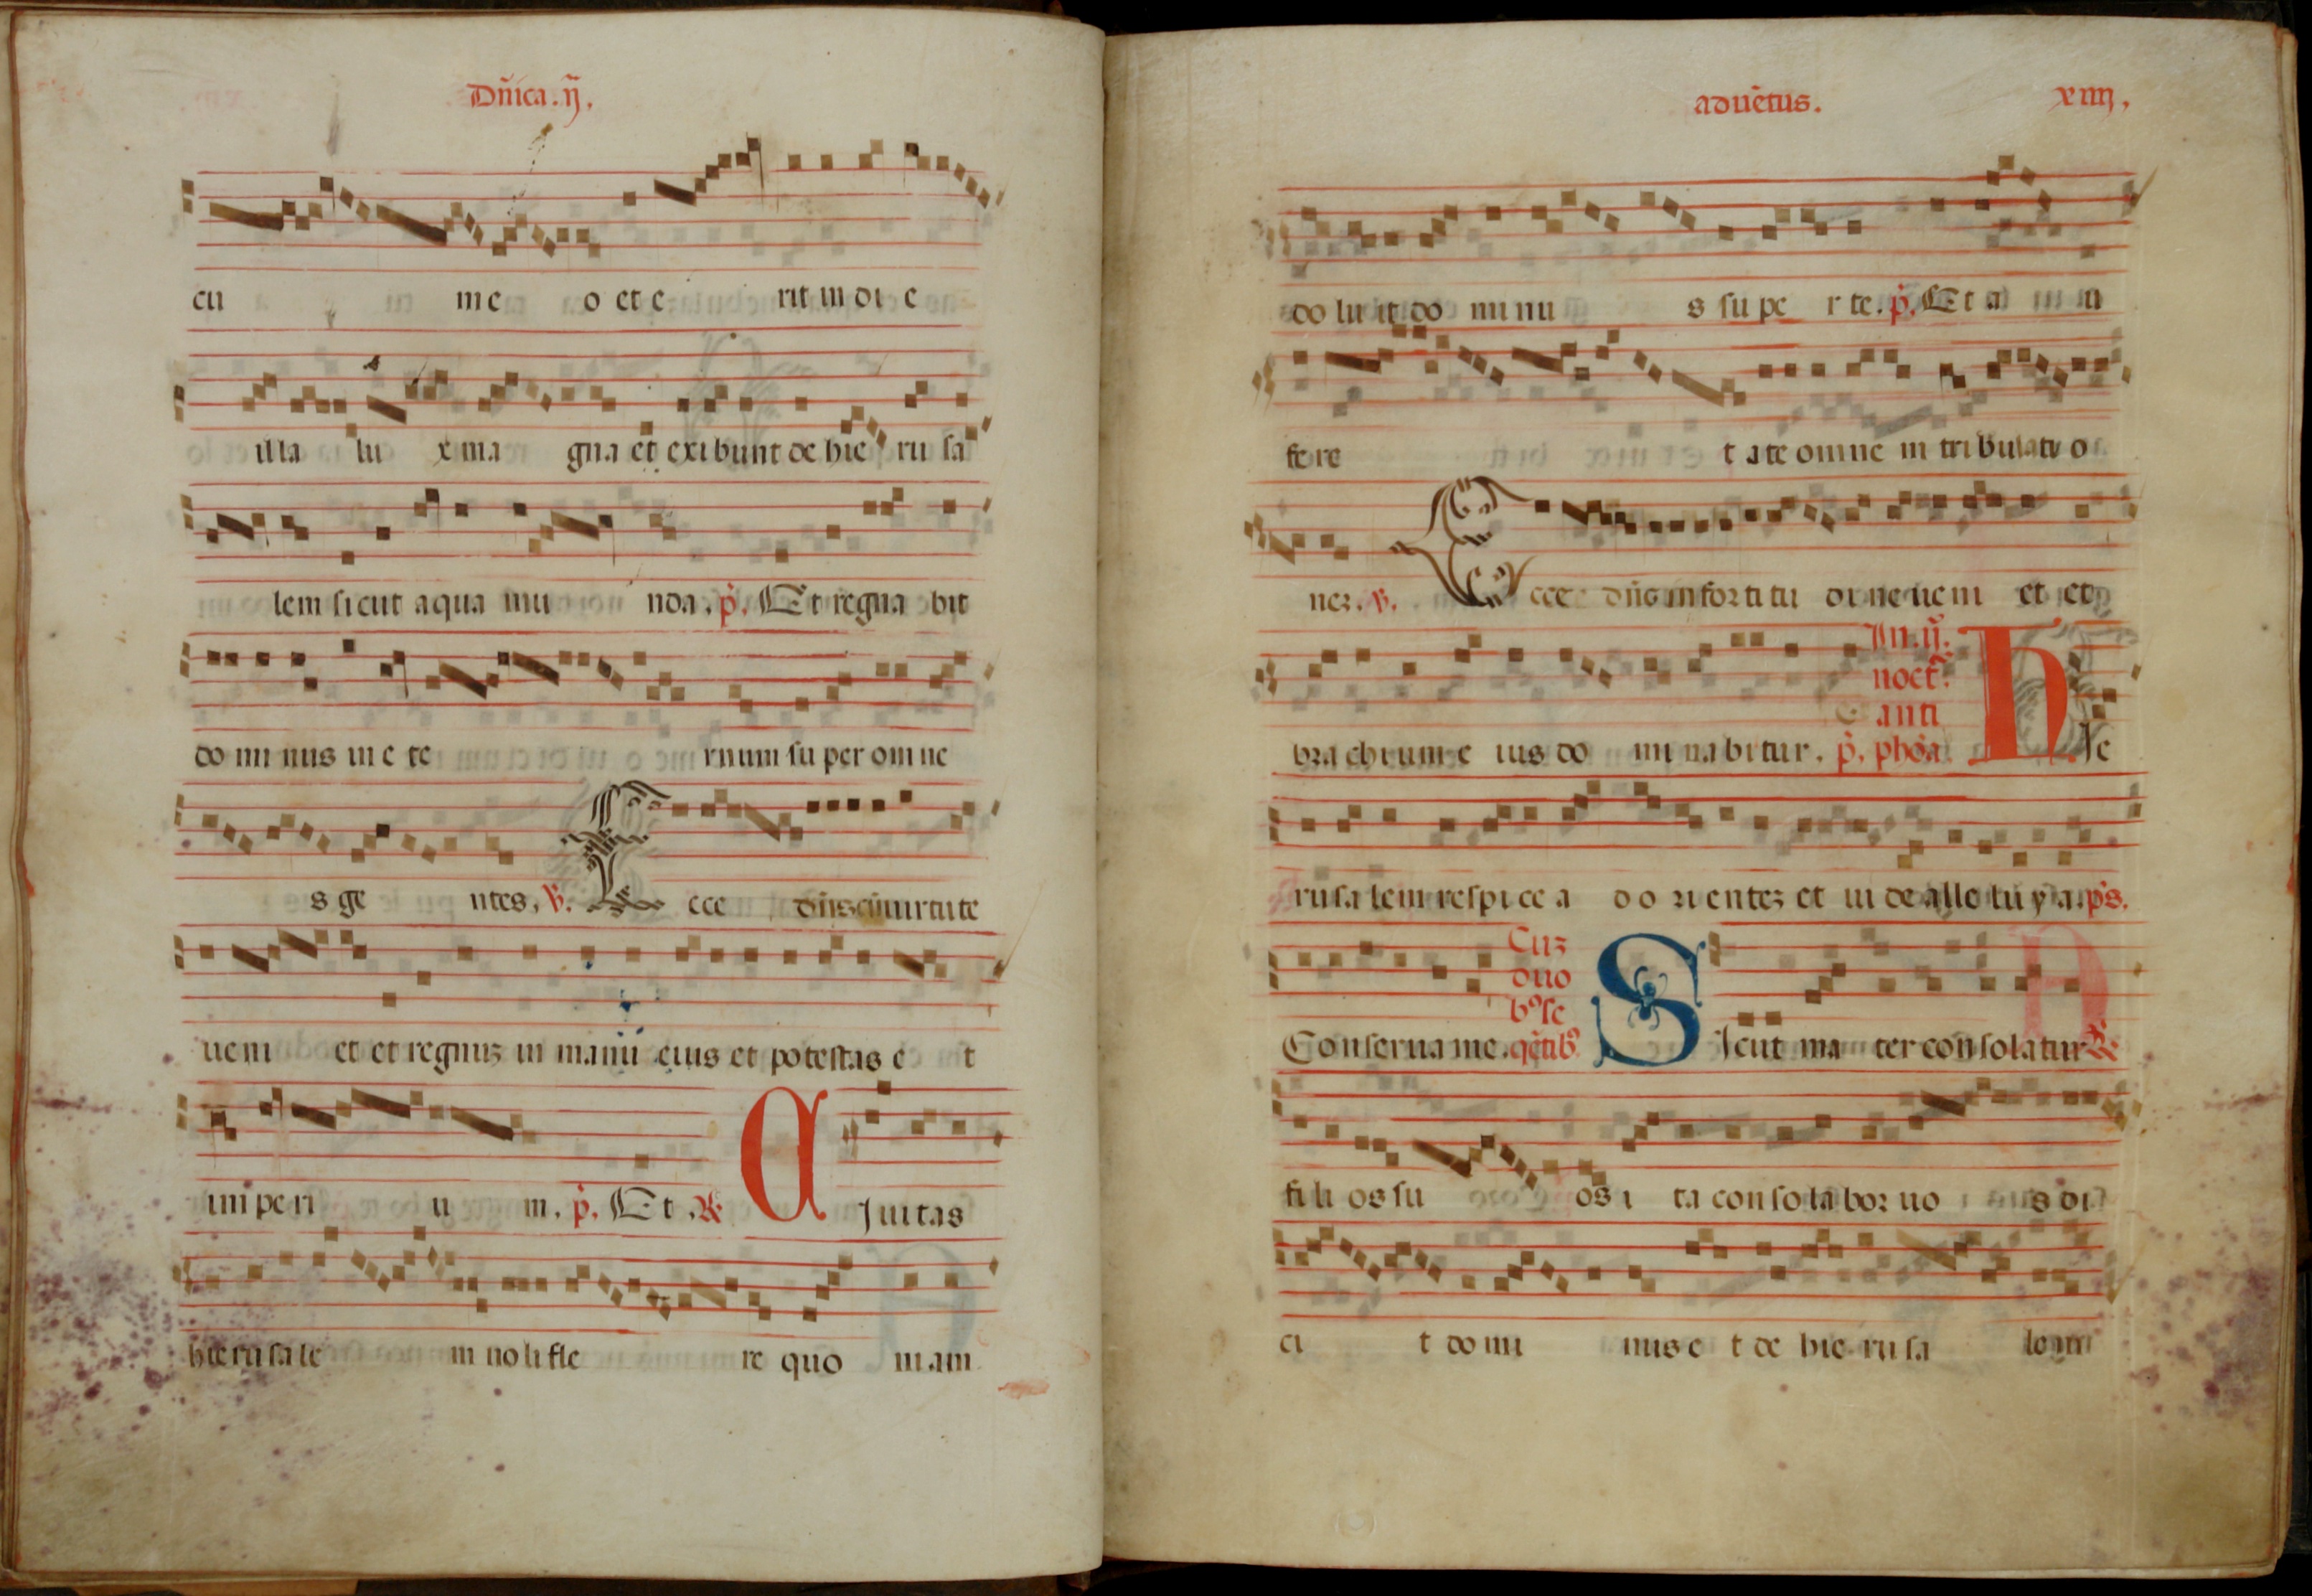 Dñica.ij.
eu me o et e rit in di e
illa lu x ma gna et exibunt de hie ru sa
lem sicut aqua mu nda. p̃. Et regna bit
do mi nus in e te rnum su per om ne
s ge ntes. v. Ecce dñs cũ uirtute
ueni et et regnuz in manũ eius et potestas e t
imperi u m. p̃. Et. R. Ciuitas
hierusale m noli fle re quo niam
aduẽtus. xiiij.
do lu it do mi nu s su pe r te. p̃. Et a u
fe re t a te omne m tribulatio
nez. v. Ecce dñs in fortitu dine ueni et et
brachium e ius do mi nabitur. In .ij. noct. anti p̃. phõa Hie
rusalem respice a d o rientez et uide alleluya. ps.
Conserua me. Cuz duo bꝰ se qẽtibꝰ. Sicut ma ter consolatur R
fili os su os i ta consolabor uo s di
ci t domi nus e t de hie rusa lem